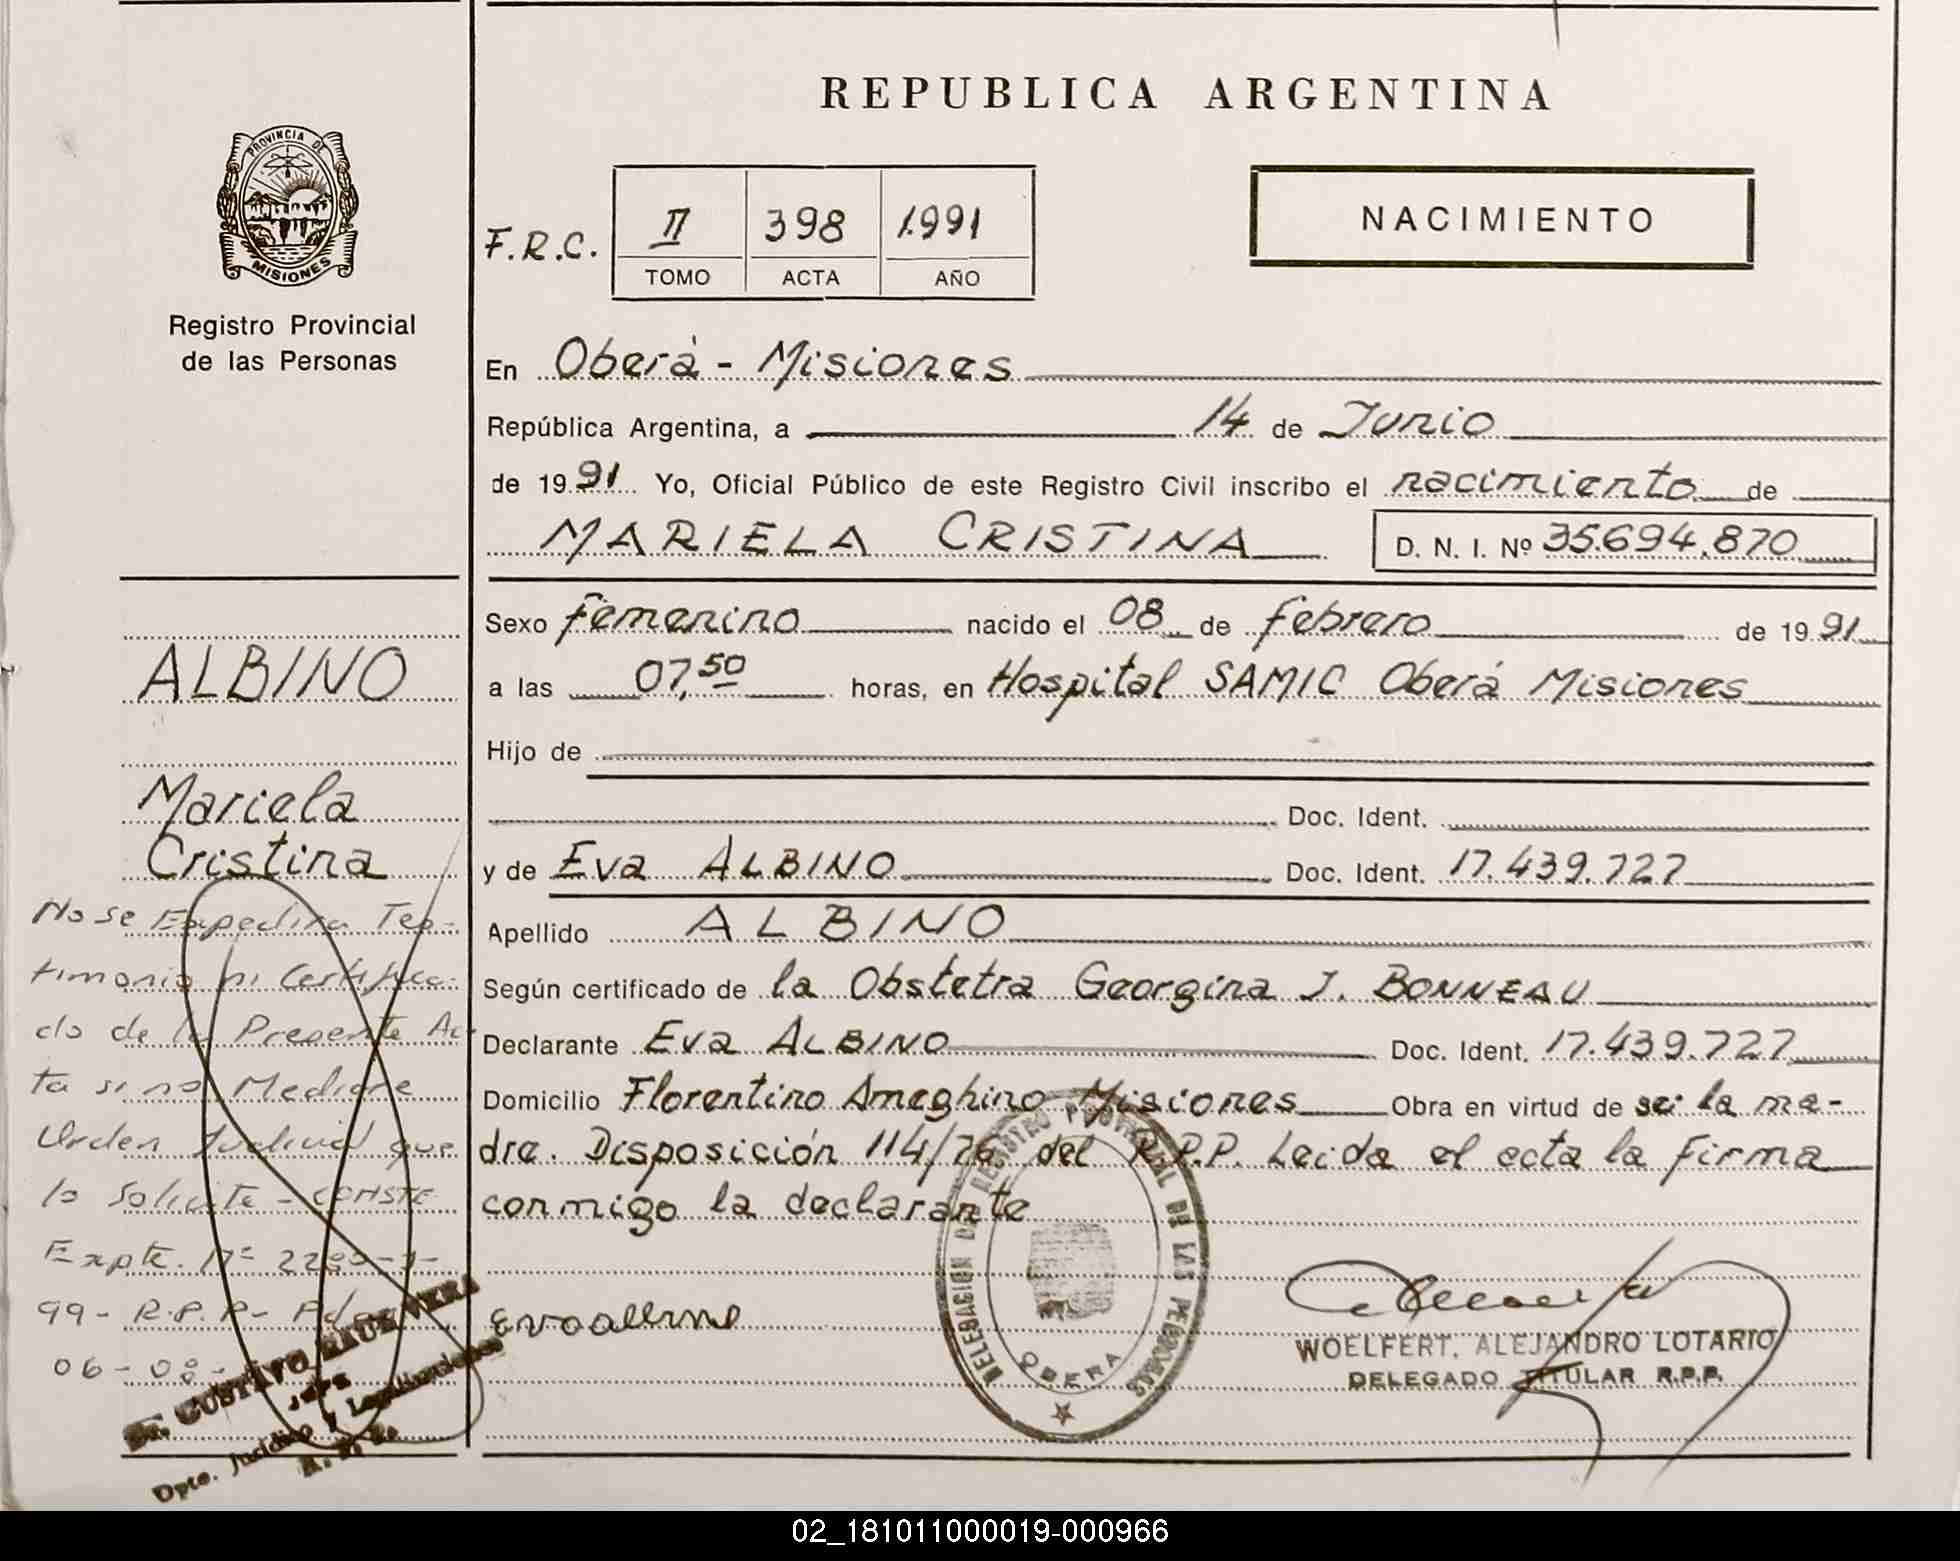 REPUBLICA ARGENTINA
PROVINCIA DE
MISIONES
Registro Provincial
de las Personas
F.R.C. II 398 1.991
TOMO ACTA AÑO
NACIMIENTO
En Oberá - Misiones
República Argentina, a 14 de Junio
de 19 91 Yo, Oficial Público de este Registro Civil inscribo el nacimiento de
MARIELA CRISTINA D. N. I. Nº 35.694.870
Sexo femenino nacido el 08 de febrero de 19 91
a las 07,50 horas, en Hospital SAMIC Oberá Misiones
Hijo de
Doc. Ident.
y de Eva ALBINO Doc. Ident. 17.439.727
Apellido ALBINO
Según certificado de la Obstetra Georgina J. BONNEAU
Declarante Eva ALBINO Doc. Ident. 17.439.727
Domicilio Florentino Ameghino Misiones Obra en virtud de ser la ma-
dre. Disposición 114/76 del R.P.P. Leida el acta la firma
conmigo la declarante
ALBINO
Mariela
Cristina
No se Expedira Tes-
timonio ni Certifica-
do de la Presente Ac
ta si no Mediare
Orden Judicial que
lo Solicite - CONSTE
Expte. Nº
99 - R.P.P -
06 - 08 -
Dr. GUSTAVO RAUL VERA
JEFE
Dpto. Jurídico y
DELEGACION DEL REGISTRO PROVINCIAL DE LAS PERSONAS
OBERA
WOELFERT, ALEJANDRO LOTARIO
DELEGADO TITULAR R.P.P.
02_181011000019-000966